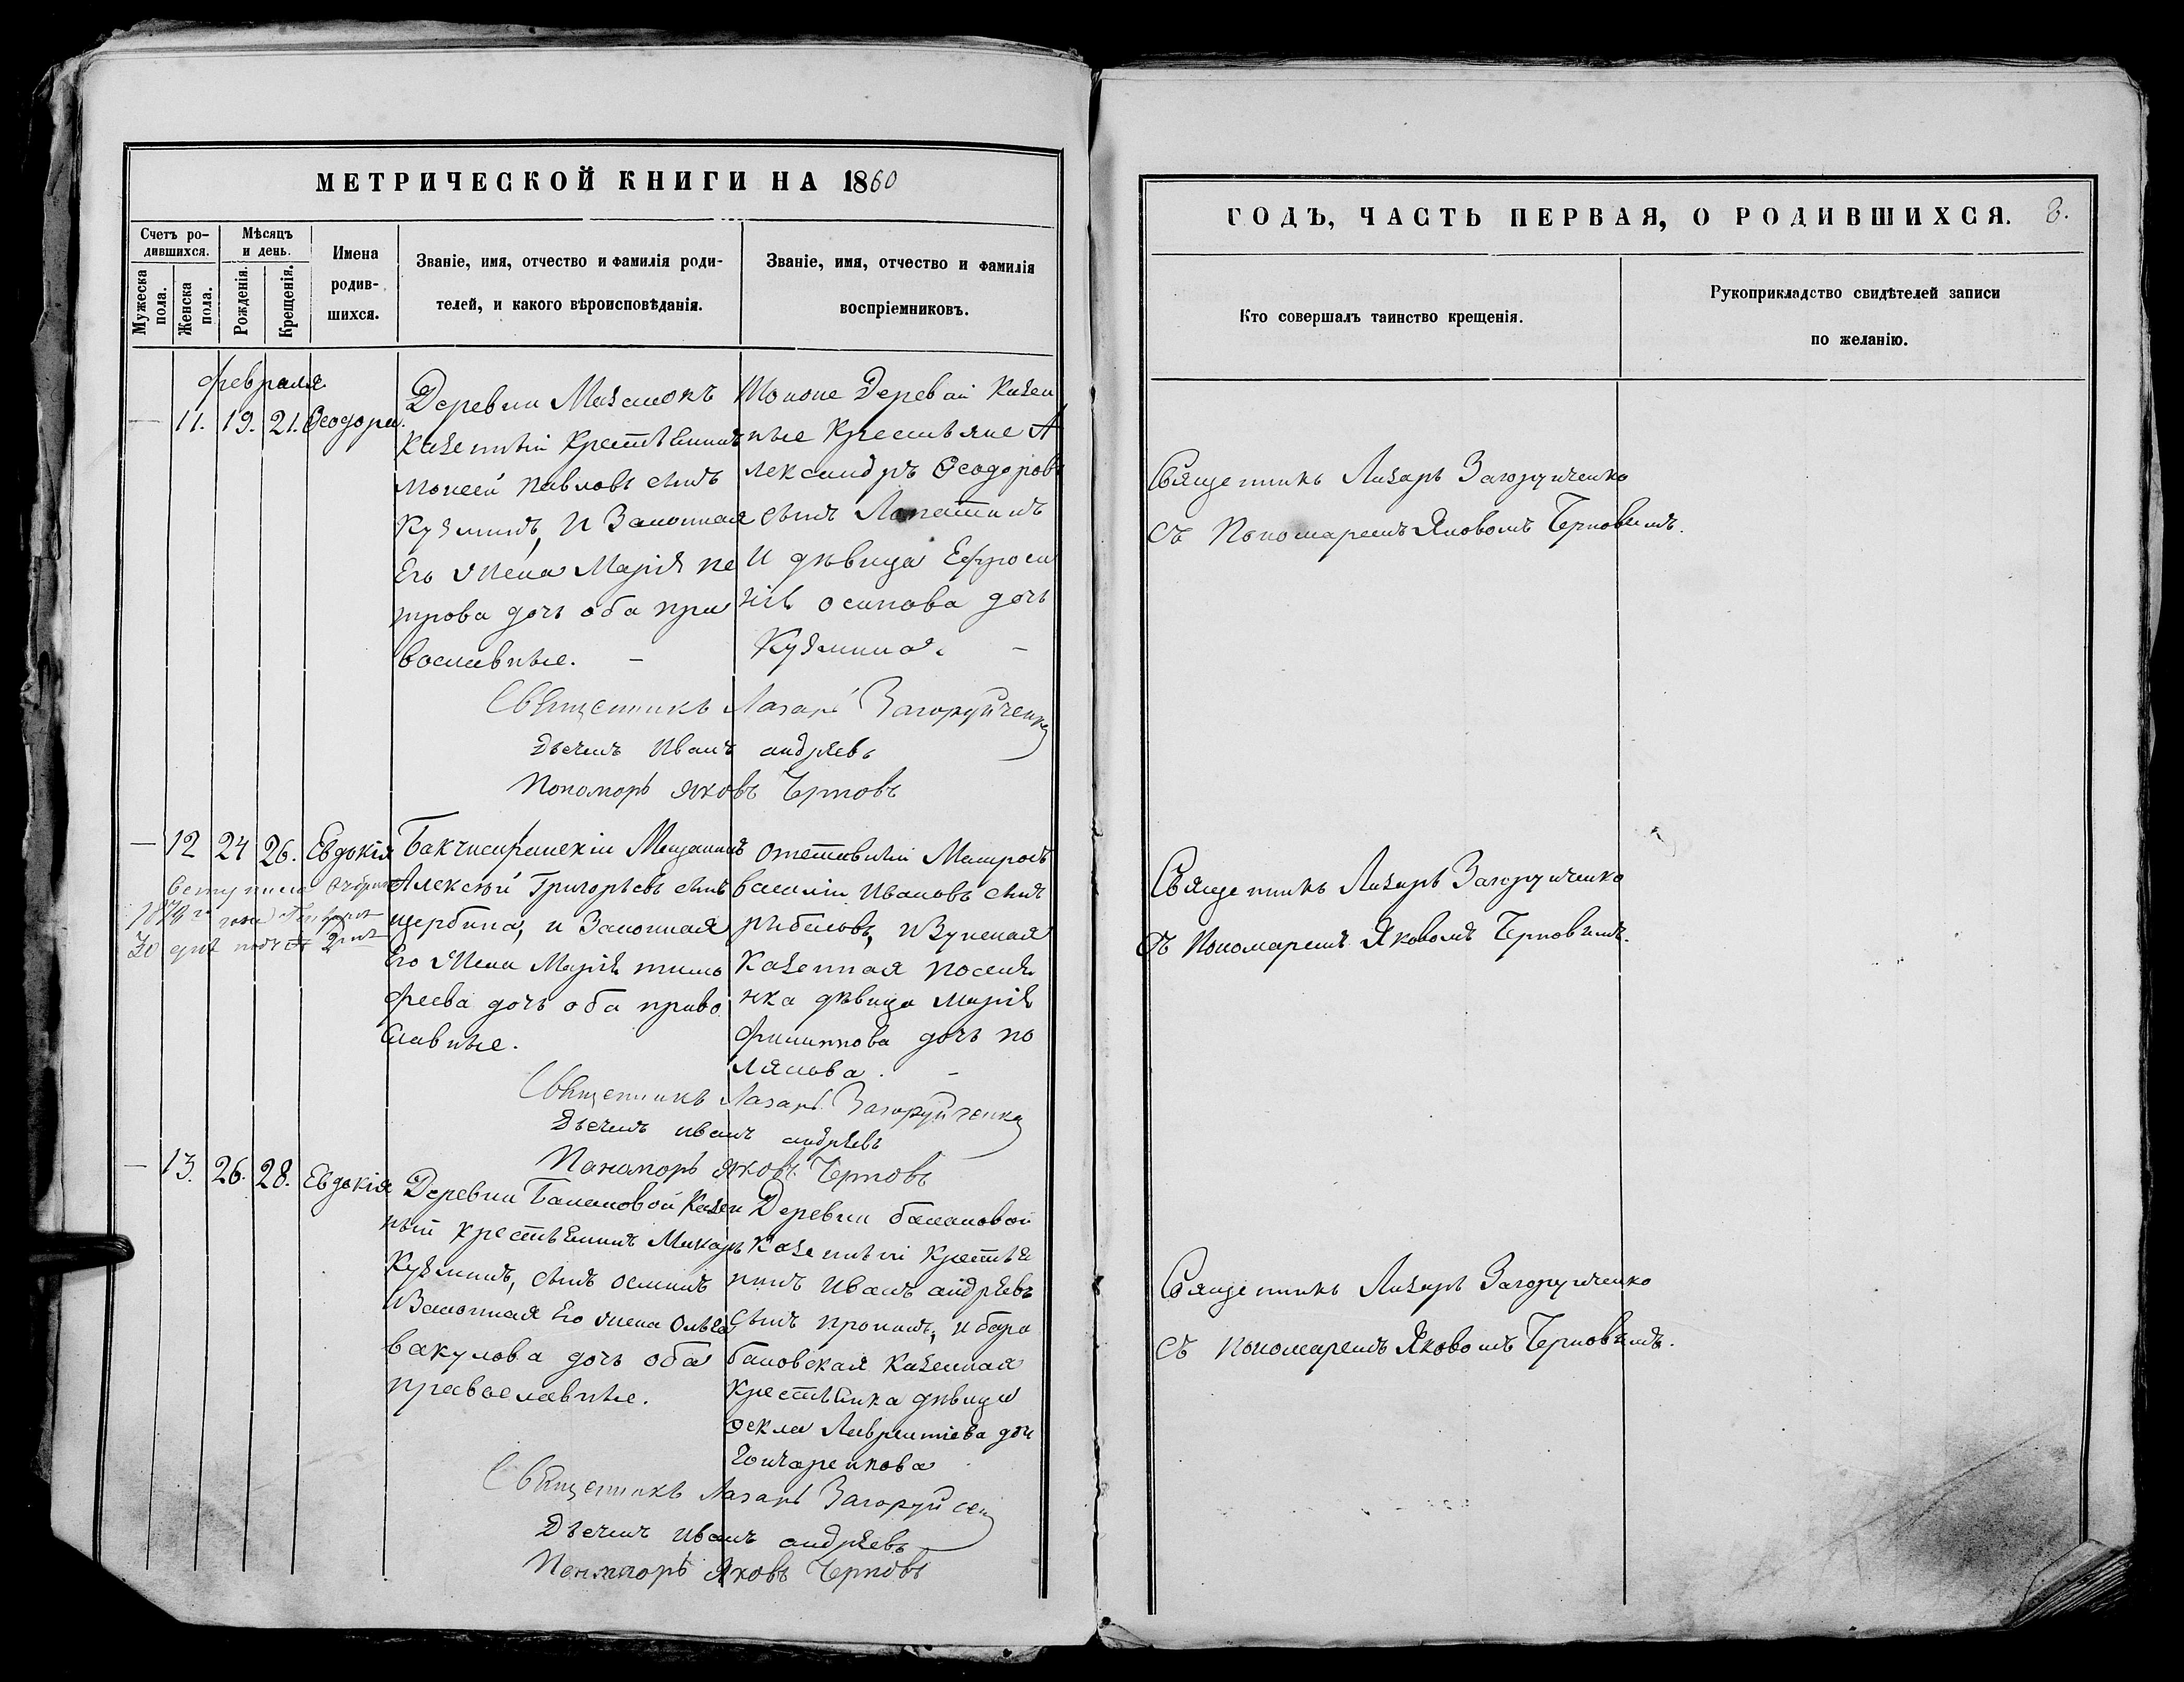 МЕТРИЧЕСКОЙ КНИГИ НА 1860
Счетъ ро-
дившихся.
Мужеска пола.
Женска пола.
Мѣсяцъ
и день.
Рожденія.
Крещенія.
Имена
родив-
шихся.
Званіе, имя, отчество и фамилія роди-
телей, и какого вѣроисповѣданія.
Званіе, имя, отчество и фамилія
воспріемниковъ.
февраля
— 11. 19. 21. Ѳеодора.
Деревни Мазанокъ
Казенный Крестьянинъ
Моисей Павловъ сынъ
Кузминъ, И Законная
Его Жена Марія пе
трова дочь оба пра
вославные. —
Тойже Деревни Казен
ные Крестьяне А
лександръ Ѳеодоровъ
сынъ Лопатинъ
И дѣвица Ефроси
нія осипова дочь
Кузмина. —
Священникъ Лазарь Загоруйченко
Дьячекъ Иванъ андрѣевъ
Пономорь яковъ Черновъ
— 12 24 26. Евдокія
1878 года
Бакчисарайскій Мещанинъ
Алексѣй Григорьевъ сынъ
щербина, и Законная
Его Жена Марія тимо
феева дочь оба право
славные.
отставный Матросъ
василій Ивановъ сынъ
рыбаловъ, и Зуйская
Казенная поселя
нка дѣвица Марія
филиппова дочь по
лякова. —
Священникъ Лазарь Загоруйченко
Дьячекъ иванъ андрѣевъ
Пономорь яковъ Черновъ
— 13. 26. 28. Евдокія
Деревни Балановой Казен
ный крестьянинъ Макаръ
Кузминъ, сынъ осминъ
И Законная Его жена Ольга
вакулова дочь оба
православные.
Деревни балановой
Казенный Крестья
нинъ Иванъ андрѣевъ
сынъ пронинъ, и бара
бановская Казенная
крестьянка дѣвица
Ѳекла Лаврентіева доч
Гончаренкова
Священникъ Лазарь Загоруйчен
Дьячекъ Иванъ андрѣевъ
Пономорь Яковъ Черновъ
ГОДЪ, ЧАСТЬ ПЕРВАЯ, О РОДИВШИХСЯ. 8.
Кто совершалъ таинство крещенія.
Рукоприкладство свидѣтелей записи
по желанію.
Священникъ Лазарь Загоруйченко
съ Пономаремъ Яковомъ Черновымъ.
Священникъ Лазарь Загоруйченко
съ Пономаремъ Яковомъ Черновымъ.
Священникъ Лазарь Загоруйченко
съ пономаремъ Яковомъ Черновымъ.